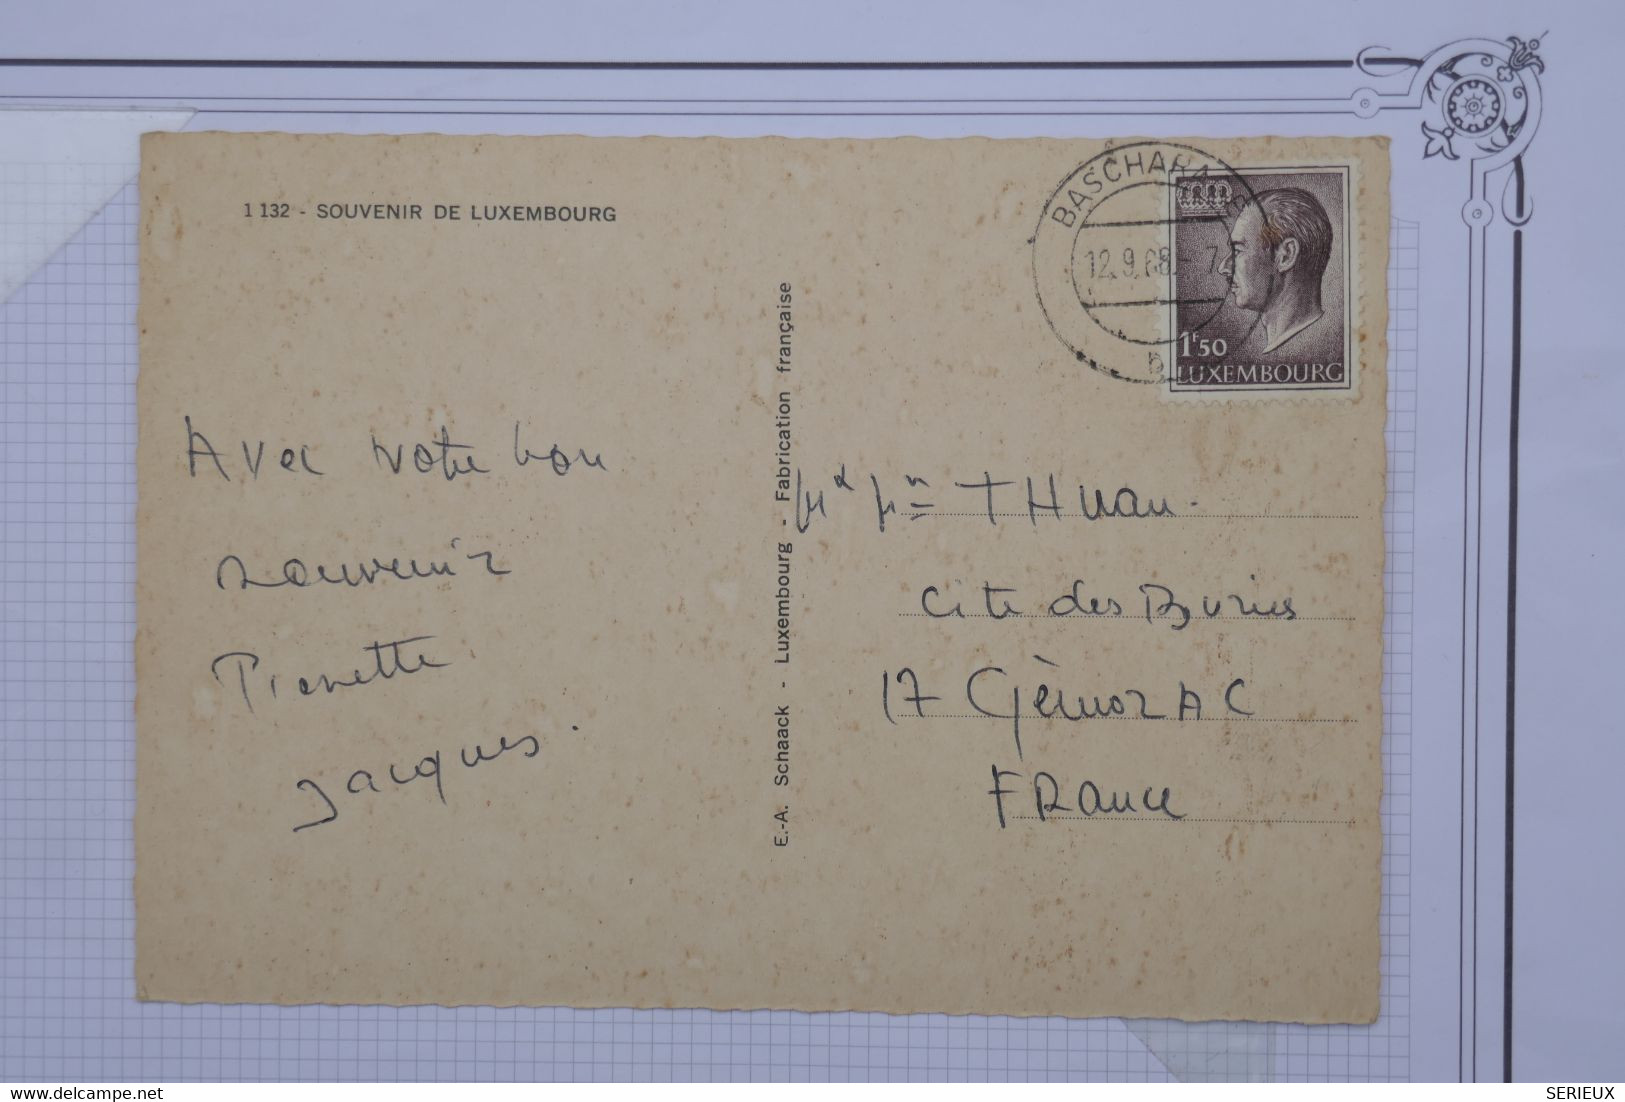 1 132 - SOUVENIR DE LUXEMBOURG
BASCHARAGE
12.9.68.- 7
b
1F50
LUXEMBOURG
E.-A. Schaack - Luxembourg - Fabrication française
Avec notre bon
souvenir
Pierrette
Jacques.
THuau.
Cité des
17 GémozAC
FRance
SERIEUX